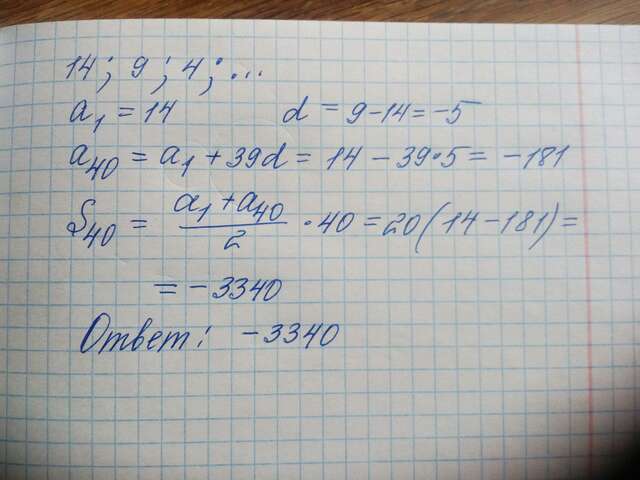 14; 9; 4; ...
a₁ = 14 d = 9-14 = -5
a₄₀ = a₁ + 39d = 14 - 39·5 = -181
S₄₀ = (a₁ + a₄₀)/2 · 40 = 20(14-181) =
= -3340
Ответ: -3340